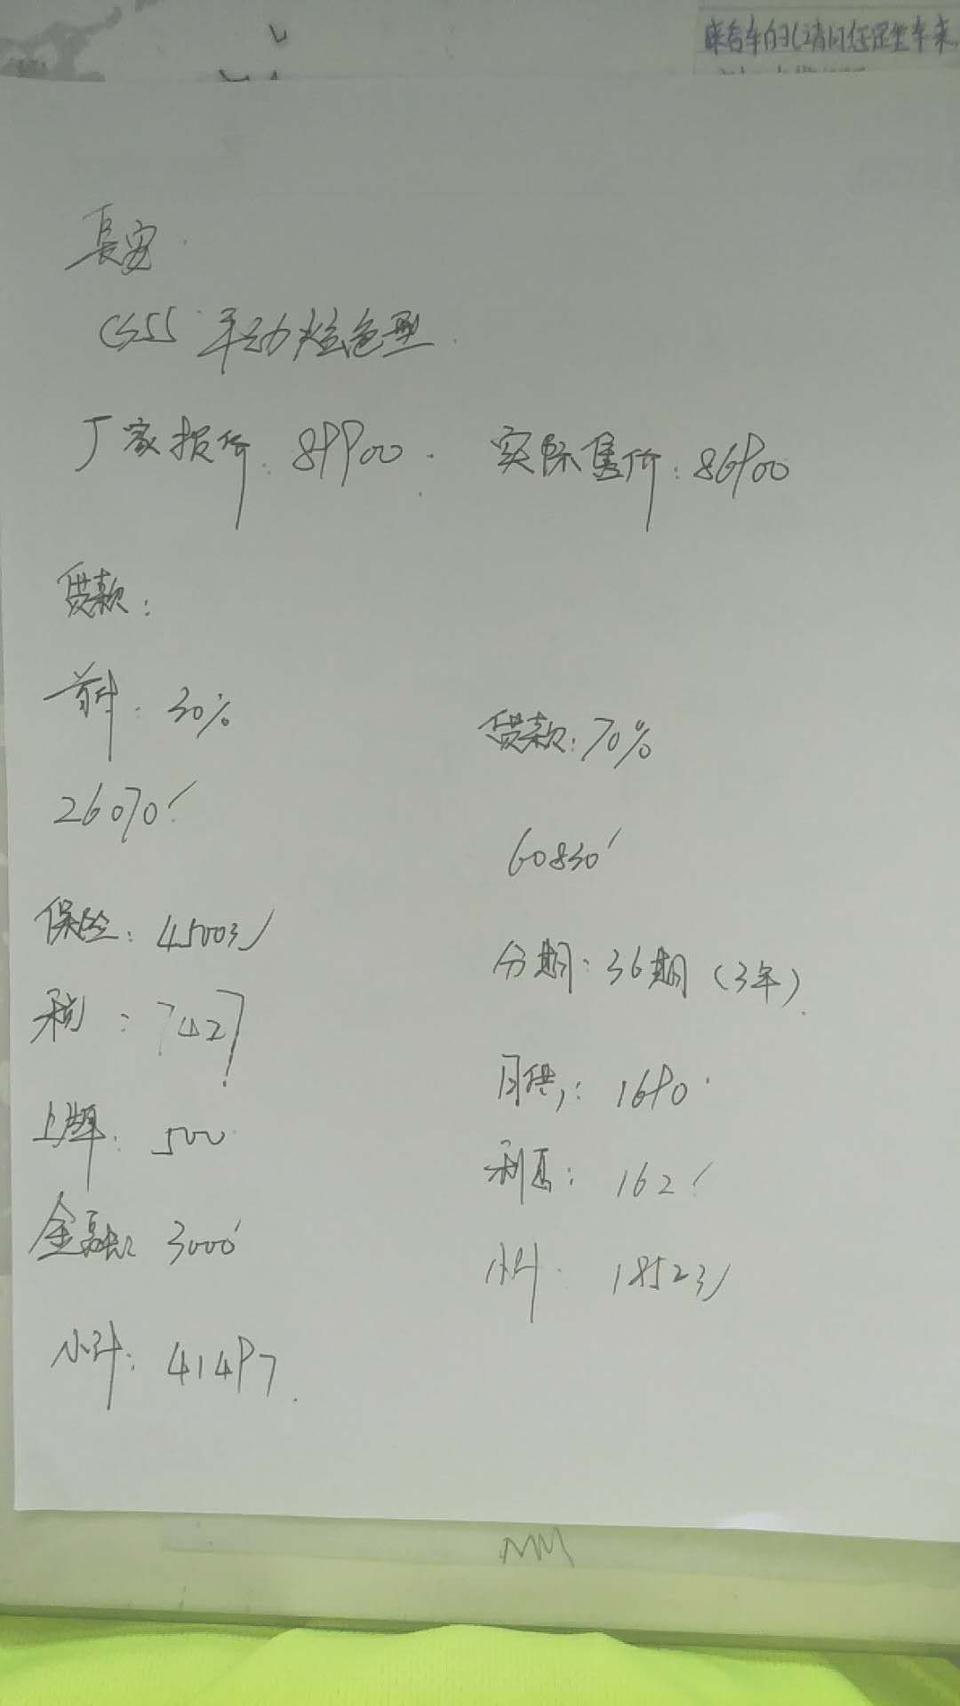 长安
CS55 手动炫色型
厂家报价:89900. 实际售价:86900
贷款:
首付:30%
贷款:70%
26070
60830
保险:4500
分期:36期(3年)
税:7427
月供:1690
上牌:500
利息:162
金融:3000
小计:1852
小计:41497